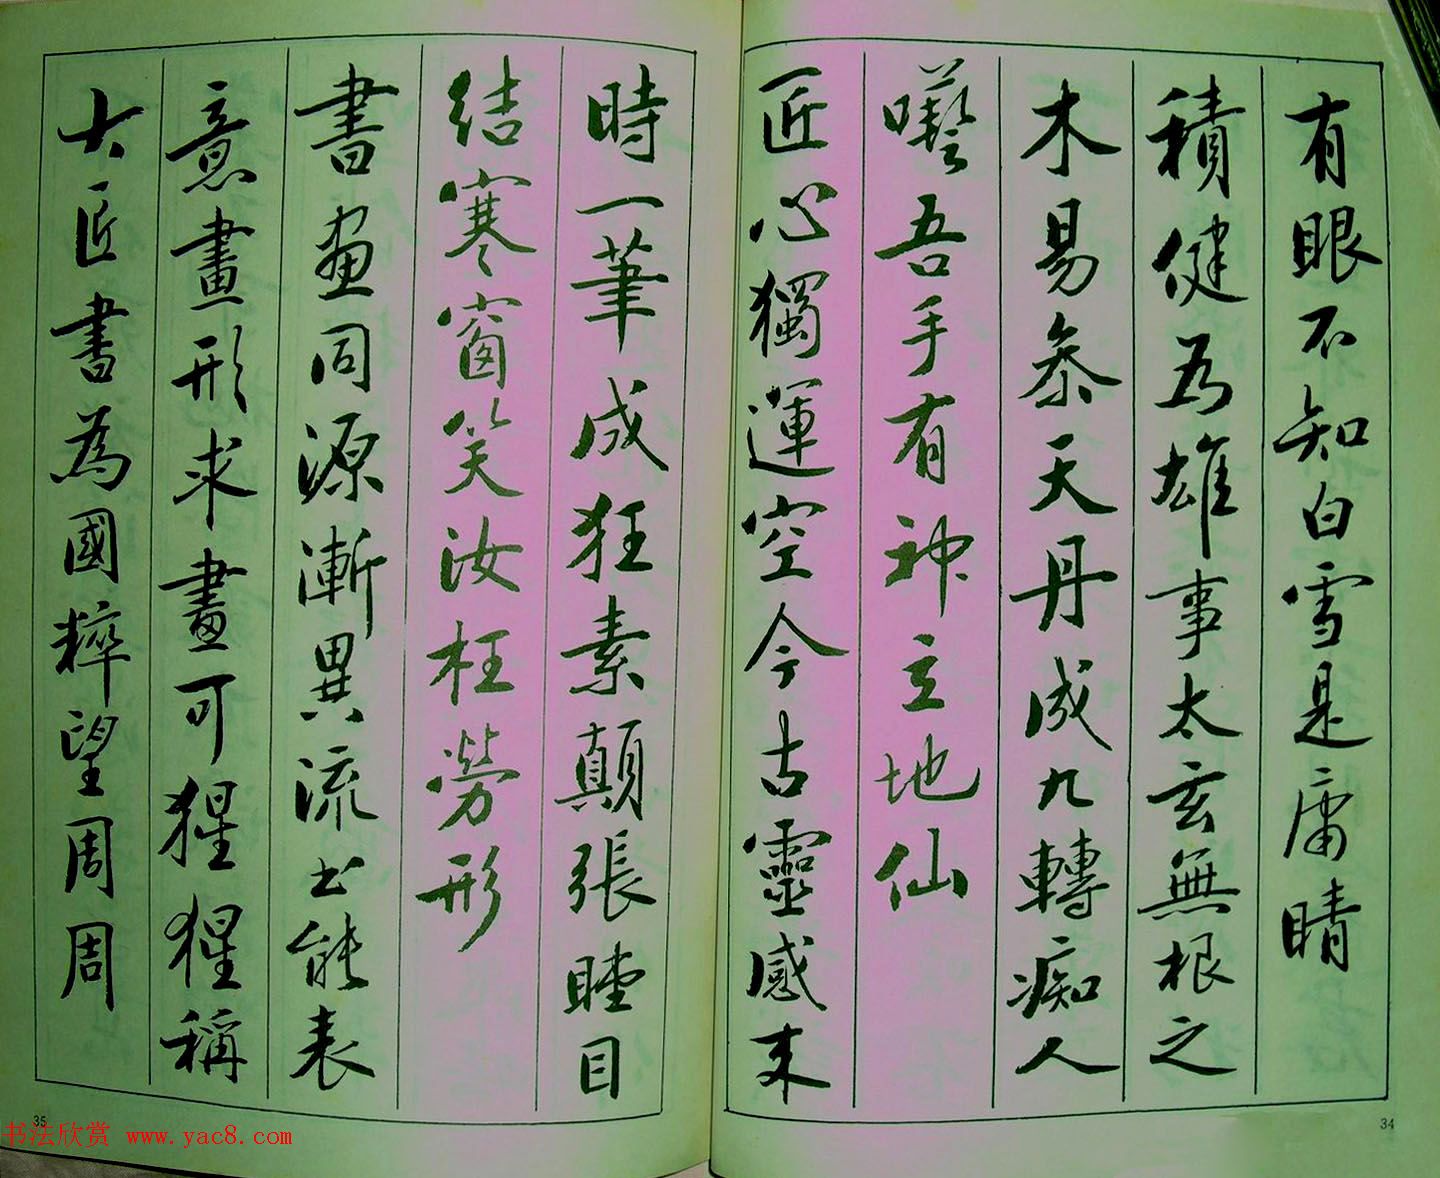 有眼不知白雪是庸睛
積健為雄事太玄無根之
木易參天丹成九轉痴人
藝吾手有神立地仙
匠心獨運空今古靈感來
時一筆成狂素顛張瞠目
结寒窗笑汝枉勞形
書画同源漸異流书能表
意畫形求畫可猩猩稱
大匠書為國粹望周周
34
35
书法欣赏 www.yac8.com